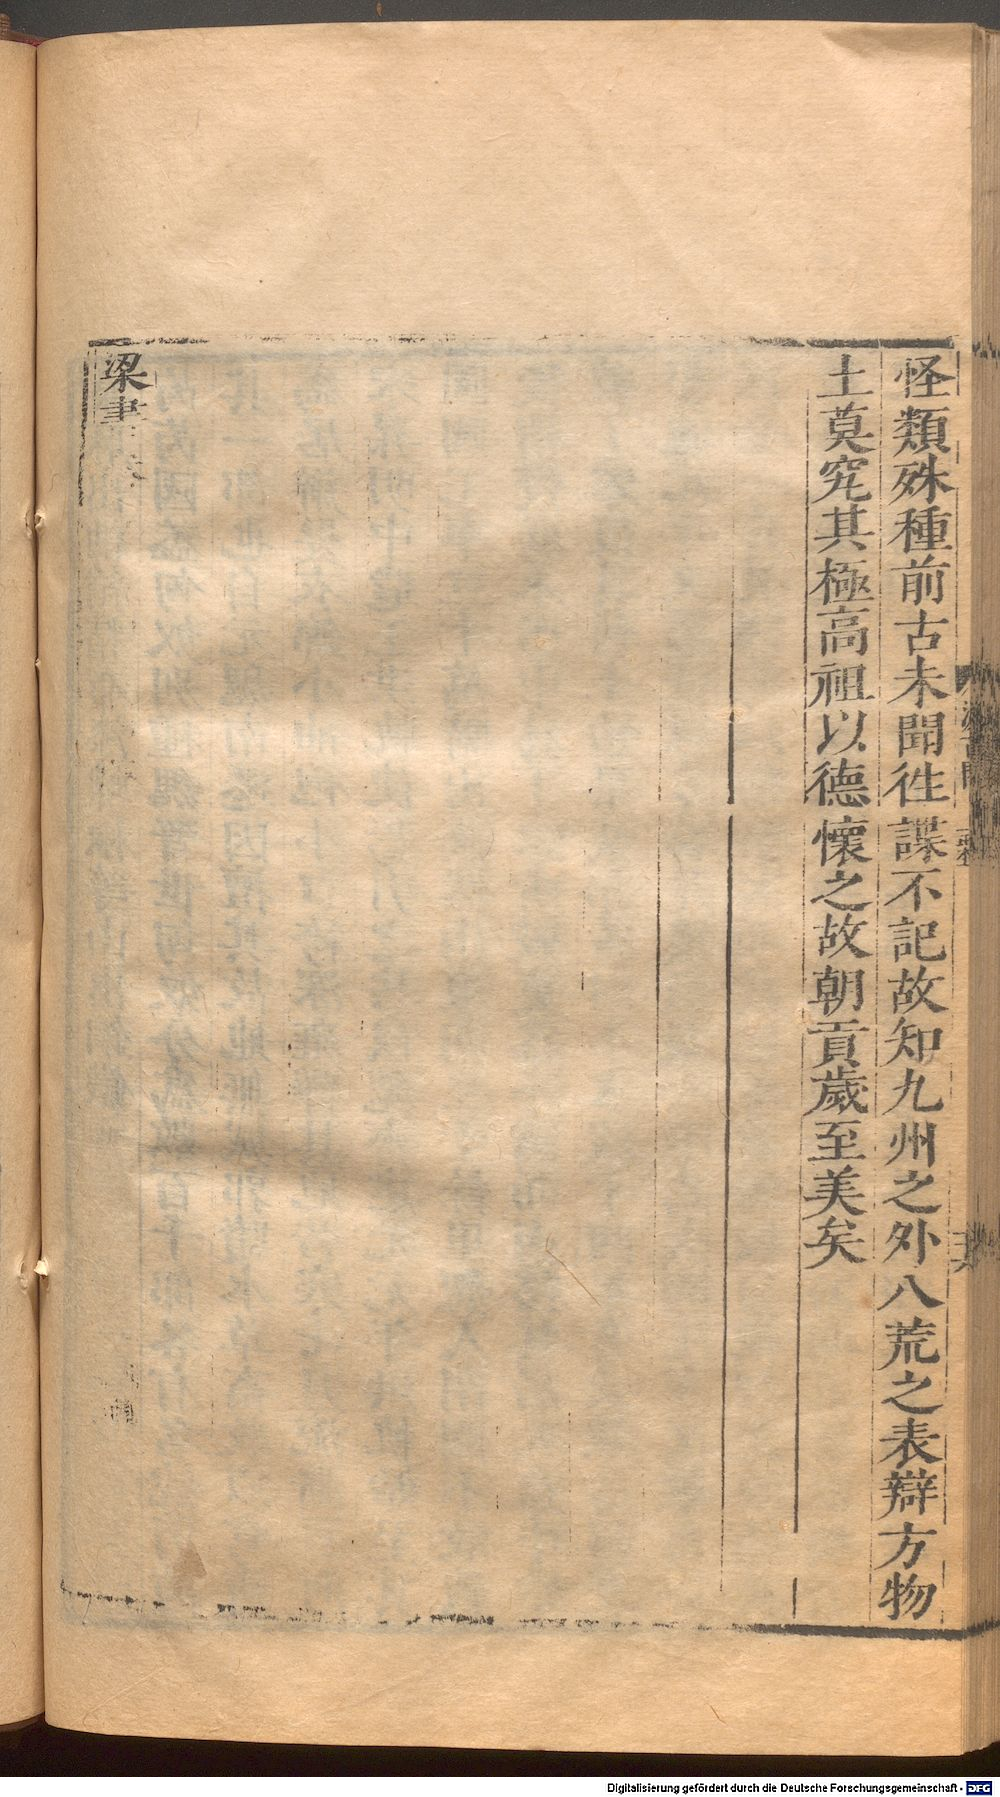 怪類殊種前古未聞徃諜不記故知九州之外八荒之表辯方物
土莫究其極高祖以德懷之故朝貢歲至美矣
梁書
Digitalisierung gefördert durch die Deutsche Forschungsgemeinschaft - DFG